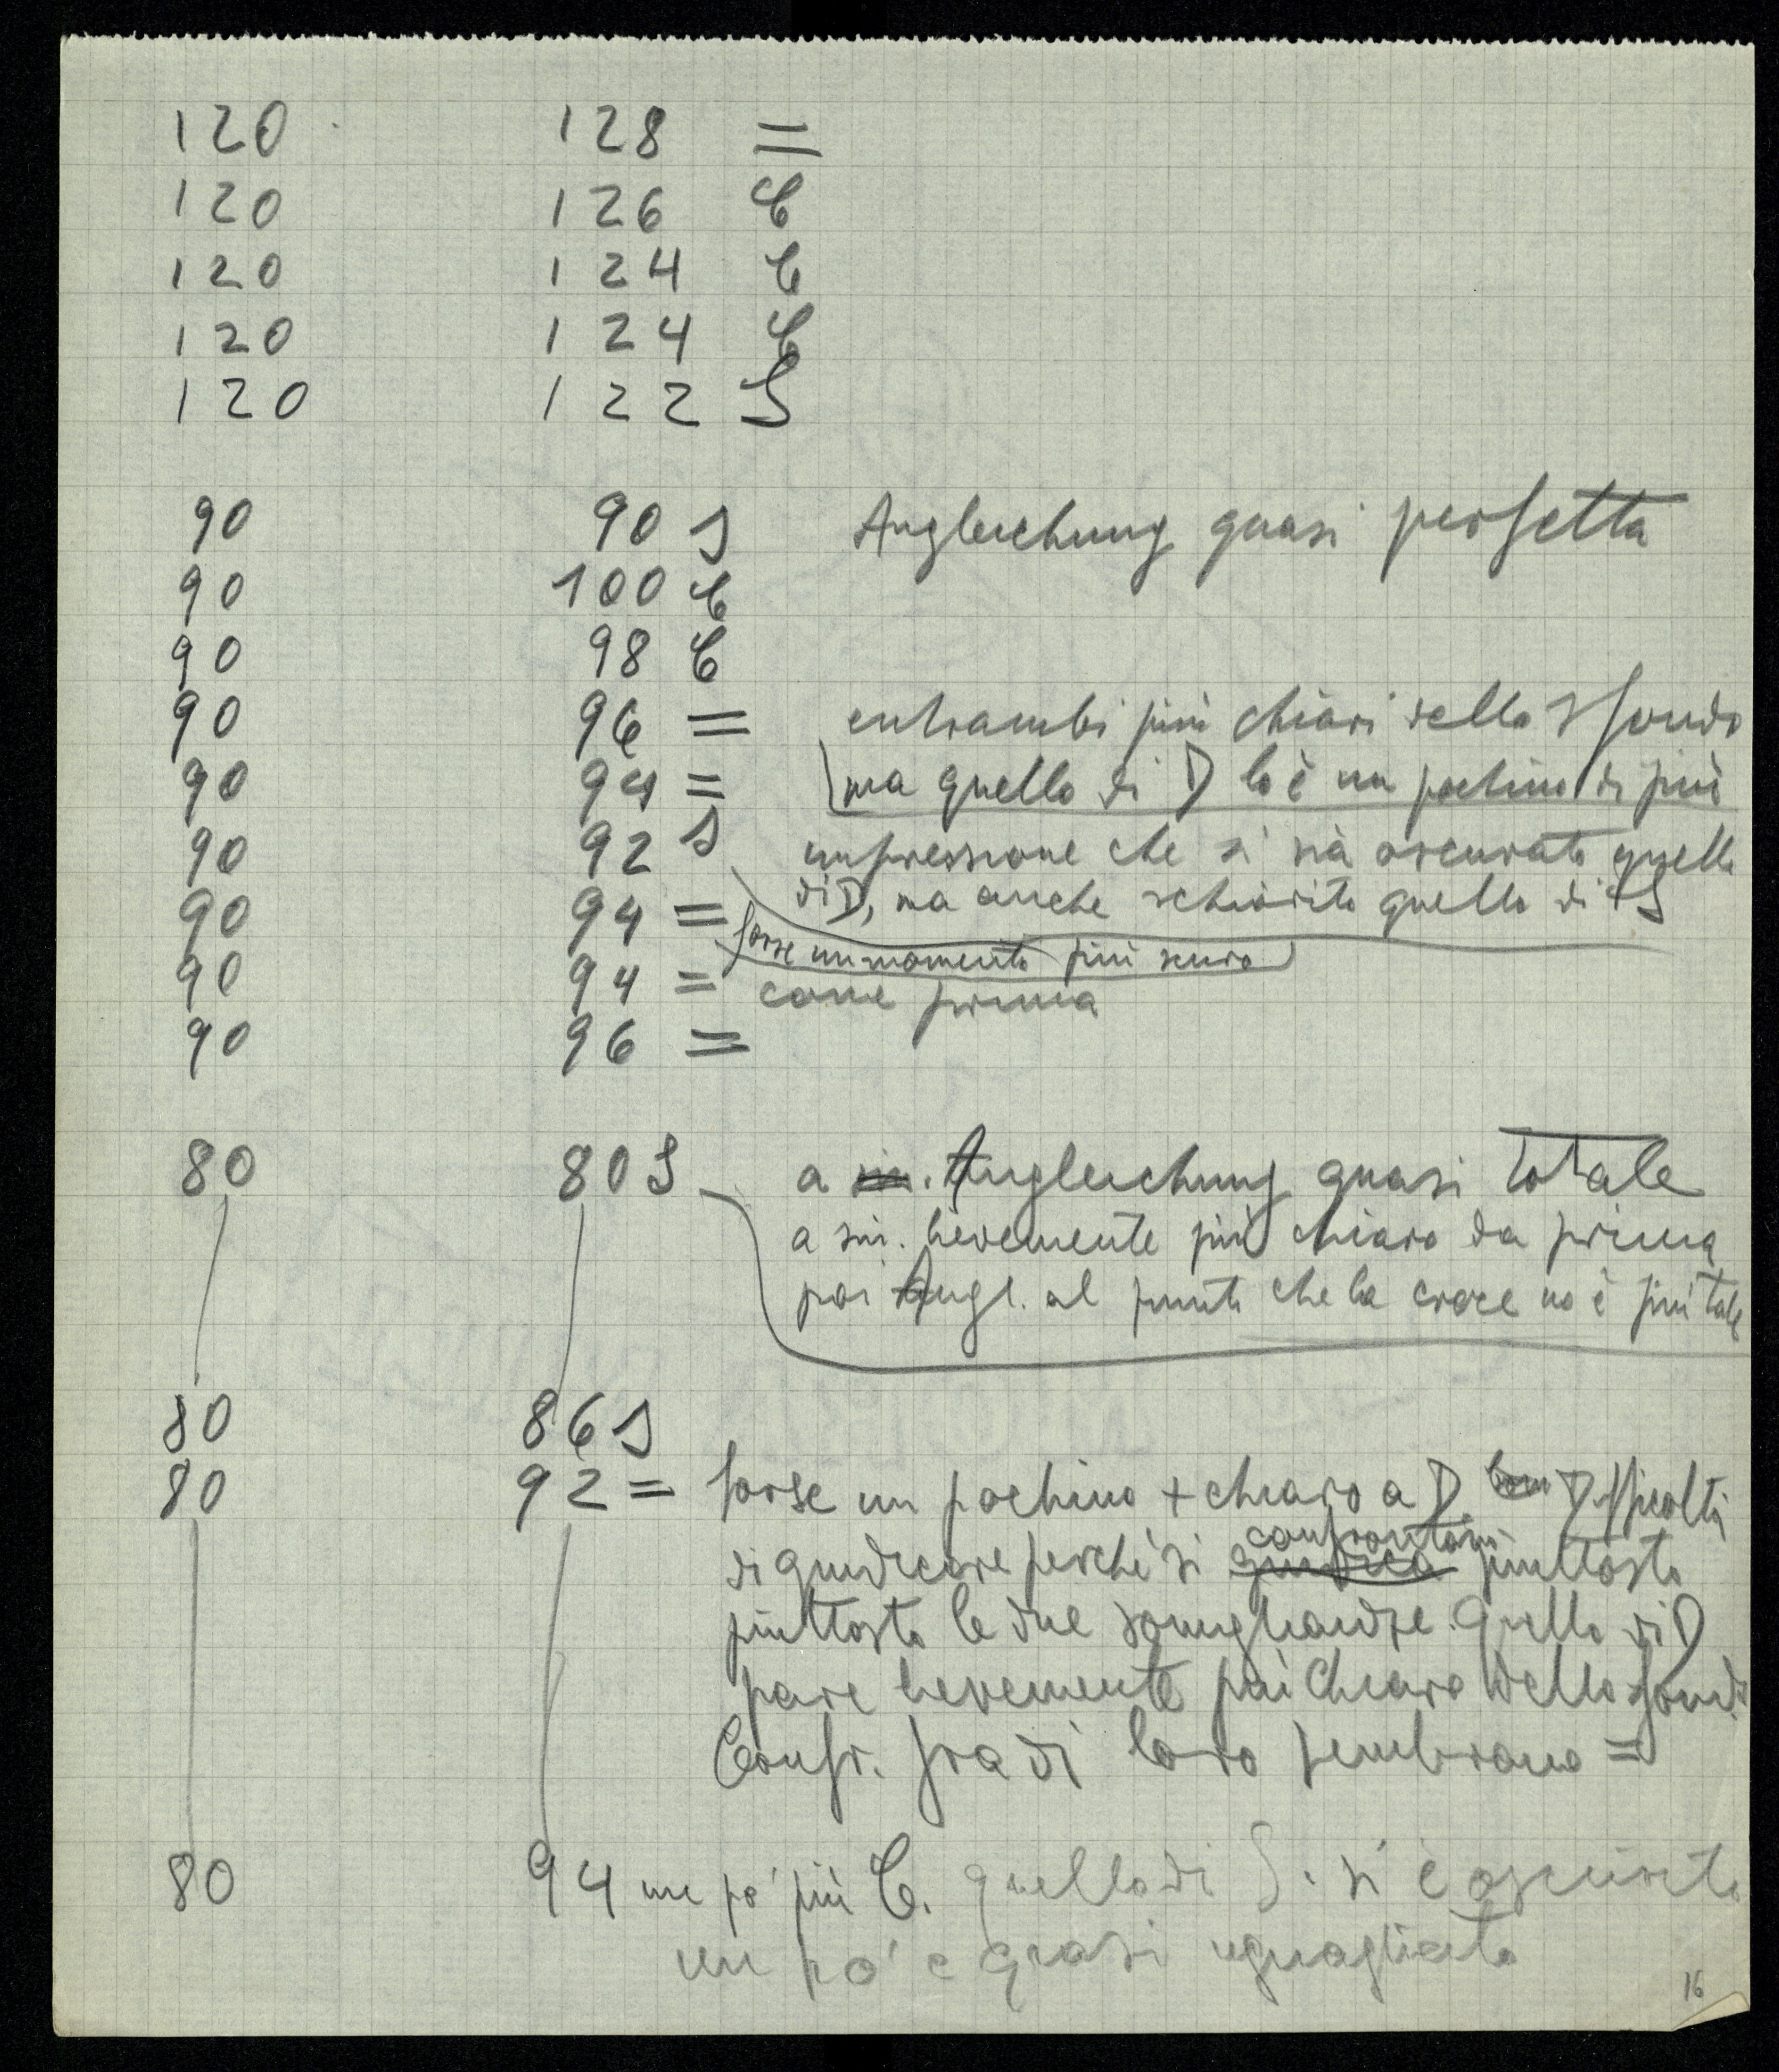 120 128 =
120 126 C
120 124 C
120 124 C
120 122 S
90 90 S Angleichung quasi perfetta
90 100 C
90 98 C
90 96 = entrambi più chiari dello sfondo
90 94 = ma quello di D lo è un pochino di più
90 92 S impressione che si sia oscurato quello
di D, ma anche schiarito quello di S
90 94 =
forse un momento più scuro
90 94 = come prima
90 96 =
80 80 S a sin. Angleichung quasi totale
a sin. lievemente più chiaro da prima
poi Angl. al punto che la croce no è più tale
80 86 S
80 92 = forse un pochino + chiaro a D Difficoltà
di giudicare perché si giudica piuttosto
piuttosto le due somiglianze. Quello di D
pare lievemente più chiaro dello sfondo
Confr. fra di loro sembrano =
80 94 un po' più C. quello di S. si è oscurato
un po' e quasi uguagliato
16